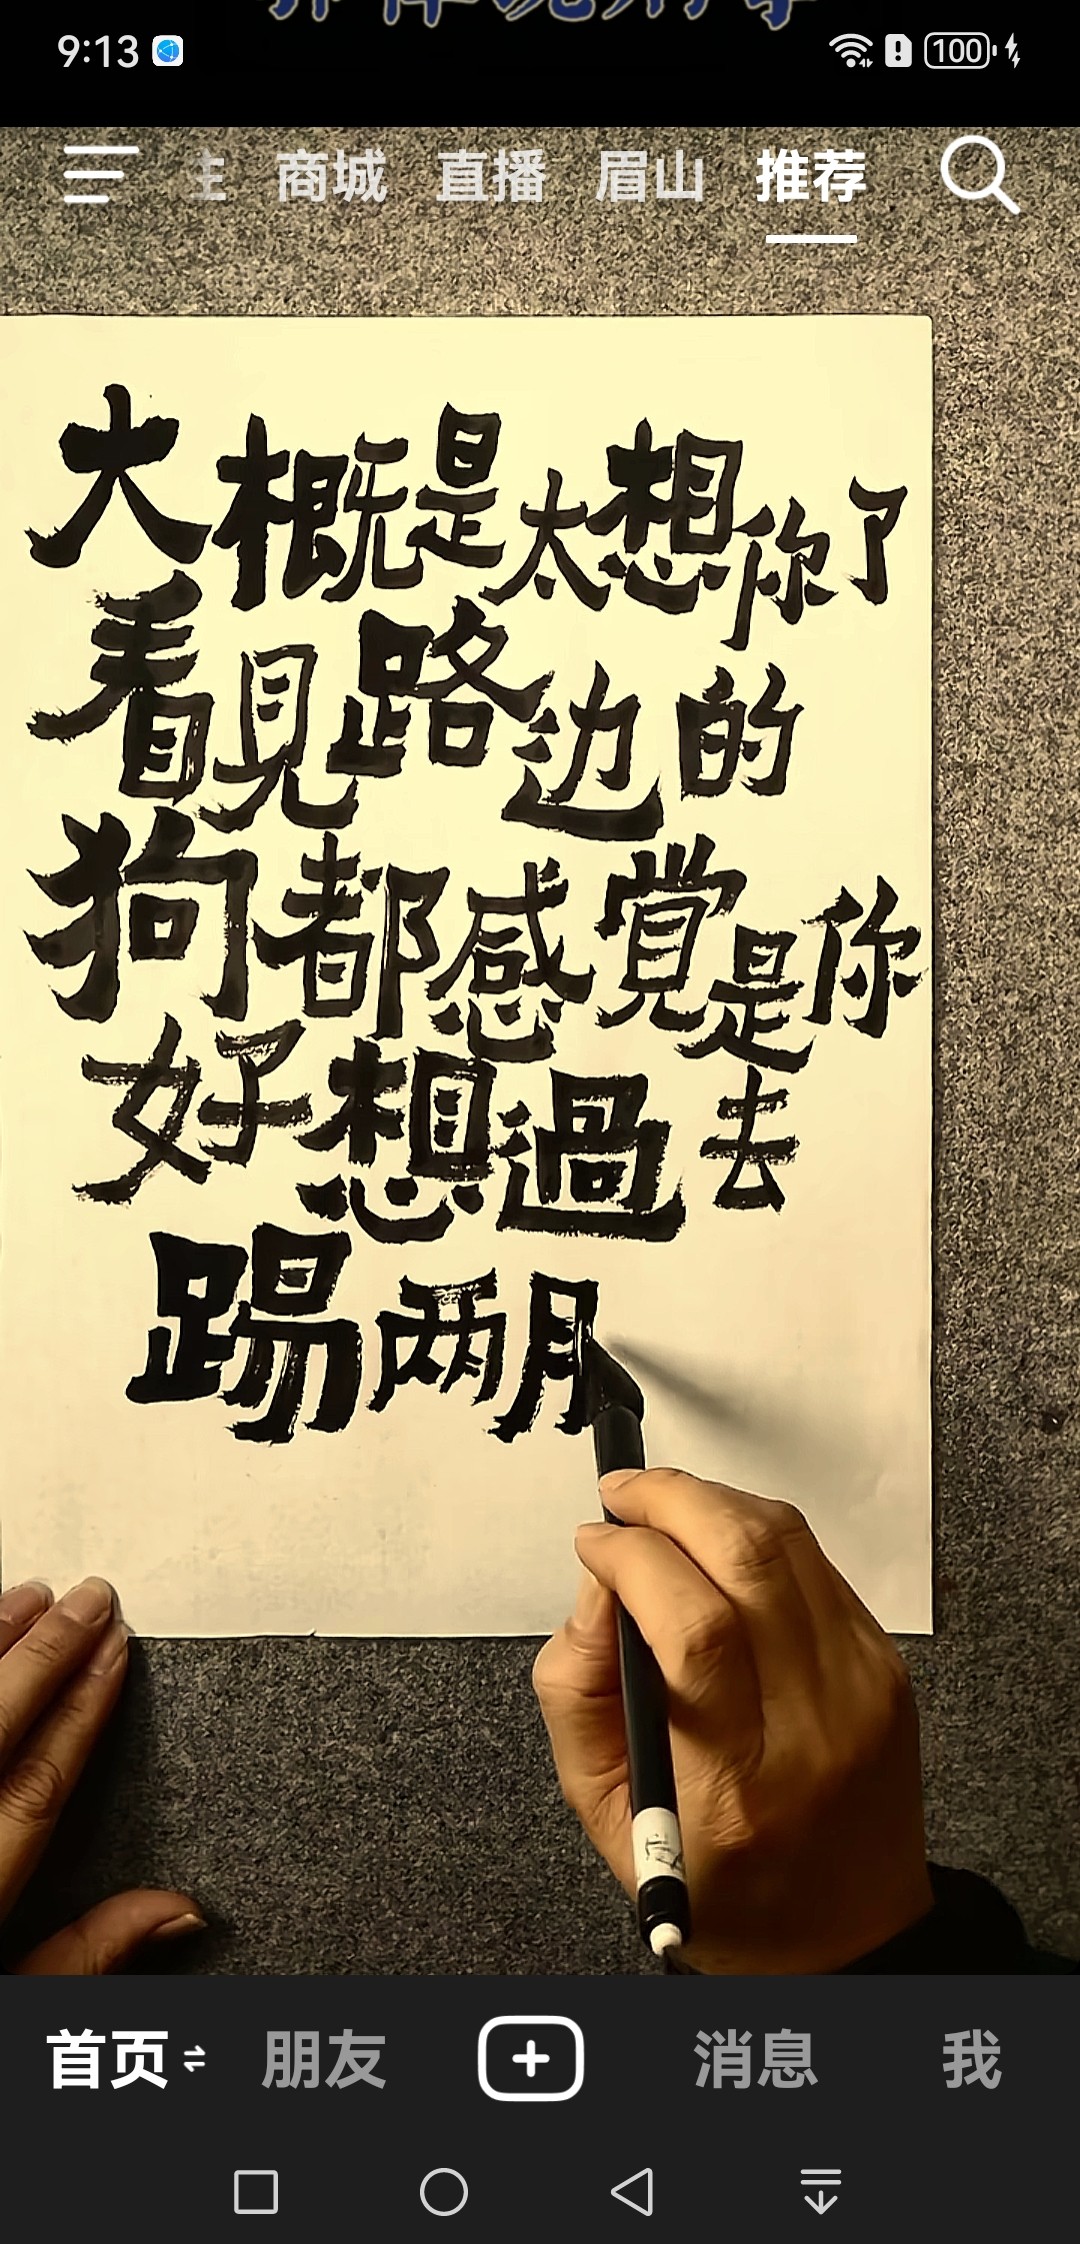 9:13 100
商城 直播 眉山 推荐
大概是太想你了
看見路边的
狗都感覚是你
好想過去
踢两
首页 朋友 消息 我